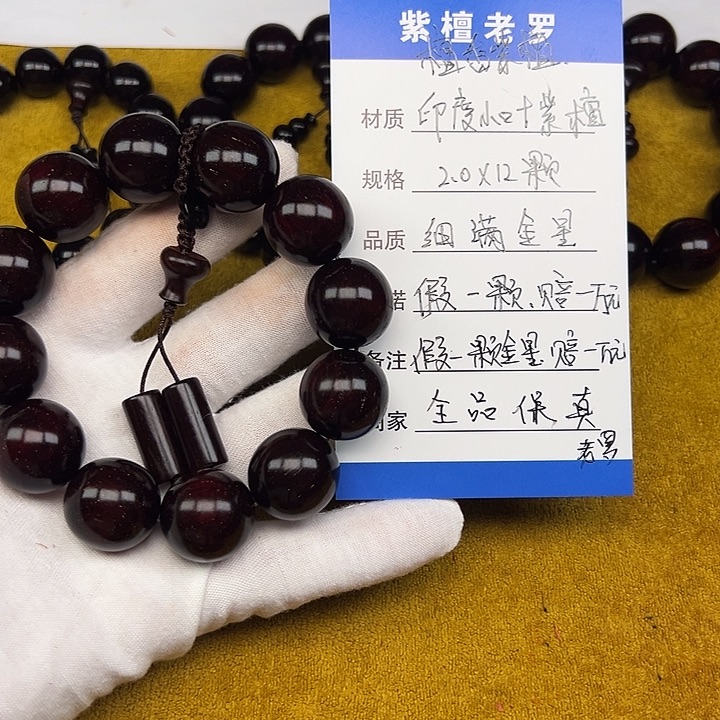 紫檀老罗
材质 印度小叶紫檀
规格 2.0X12颗
品质 细满金星
诺 假一颗.赔一万元
备注 假一颗金星.赔一万元
家 全品保真
老罗